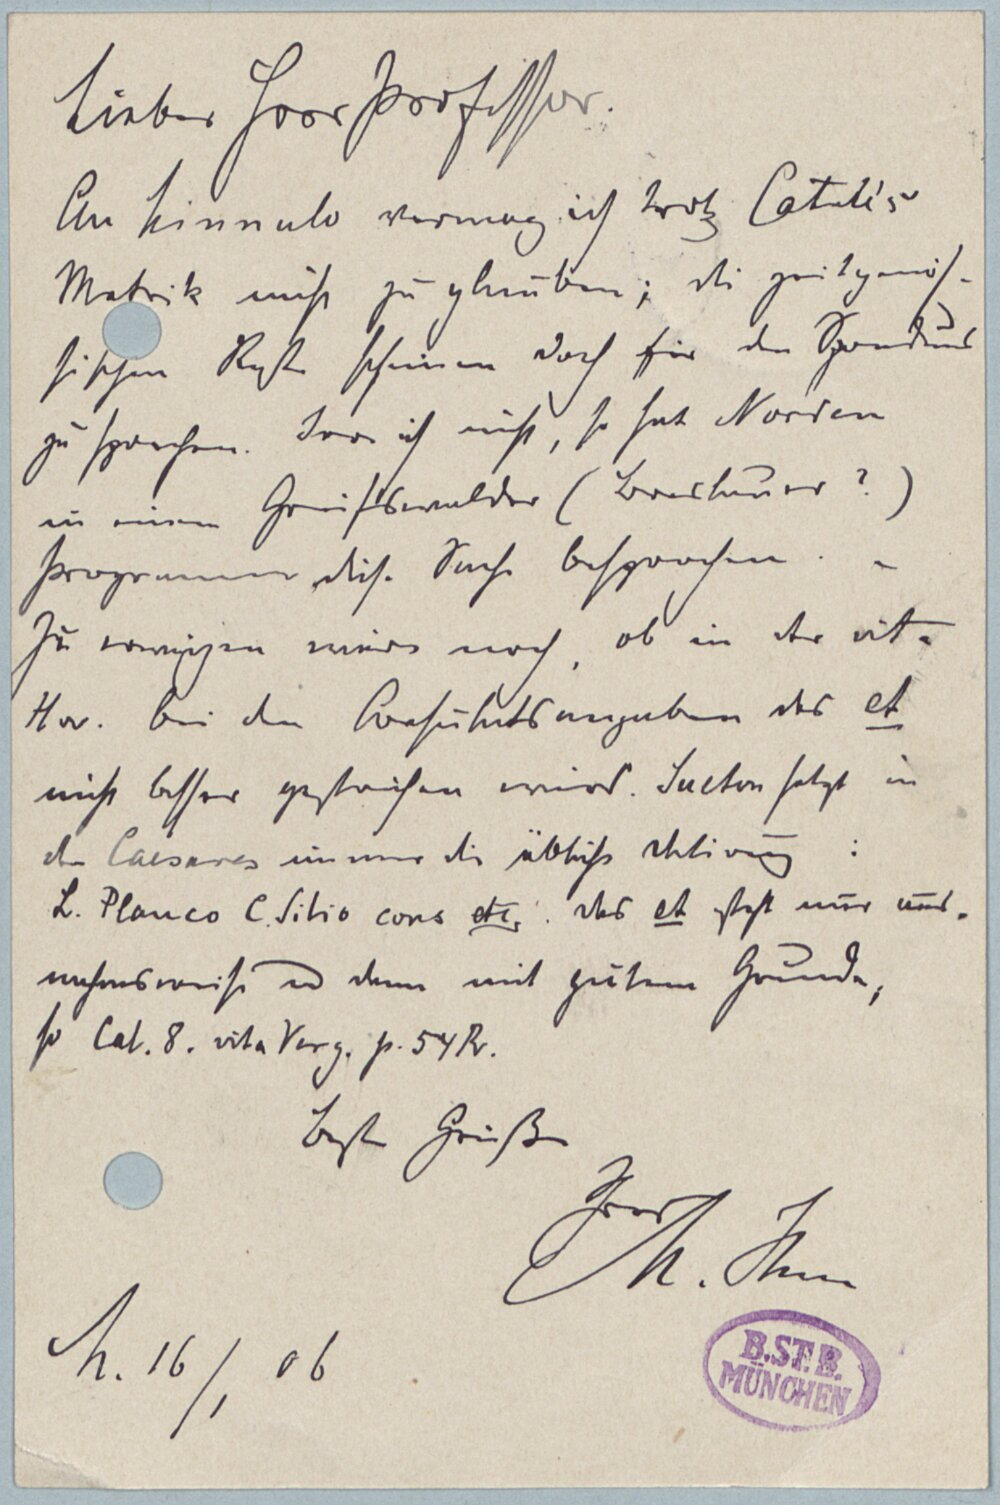 Lieber Herr Professor.
An hinnulo vermag ich trotz Catull's
Metrik nicht zu glauben; die zeitgenös-
sischen Reste scheinen doch für den Spondeus
zu sprechen. Irre ich nicht, so hat Norden
in einem Greifswalder (Breslauer?)
Programm diese Sache besprochen. –
Zu erwägen wäre noch, ob in der vita
Hor. bei den Consulatsangaben das et
nicht besser gestrichen wird. Sueton setzt in
den Caesares immer die übliche Datirung:
L. Planco C. Silio cons etc. das et steht nur aus-
nahmsweise u dann mit gutem Grunde,
so Cal. 8. vita Verg. p. 54 R.
Beste Grüße
Ihres
M. Ihm
M. 16/1 06
B.ST.B.
MÜNCHEN